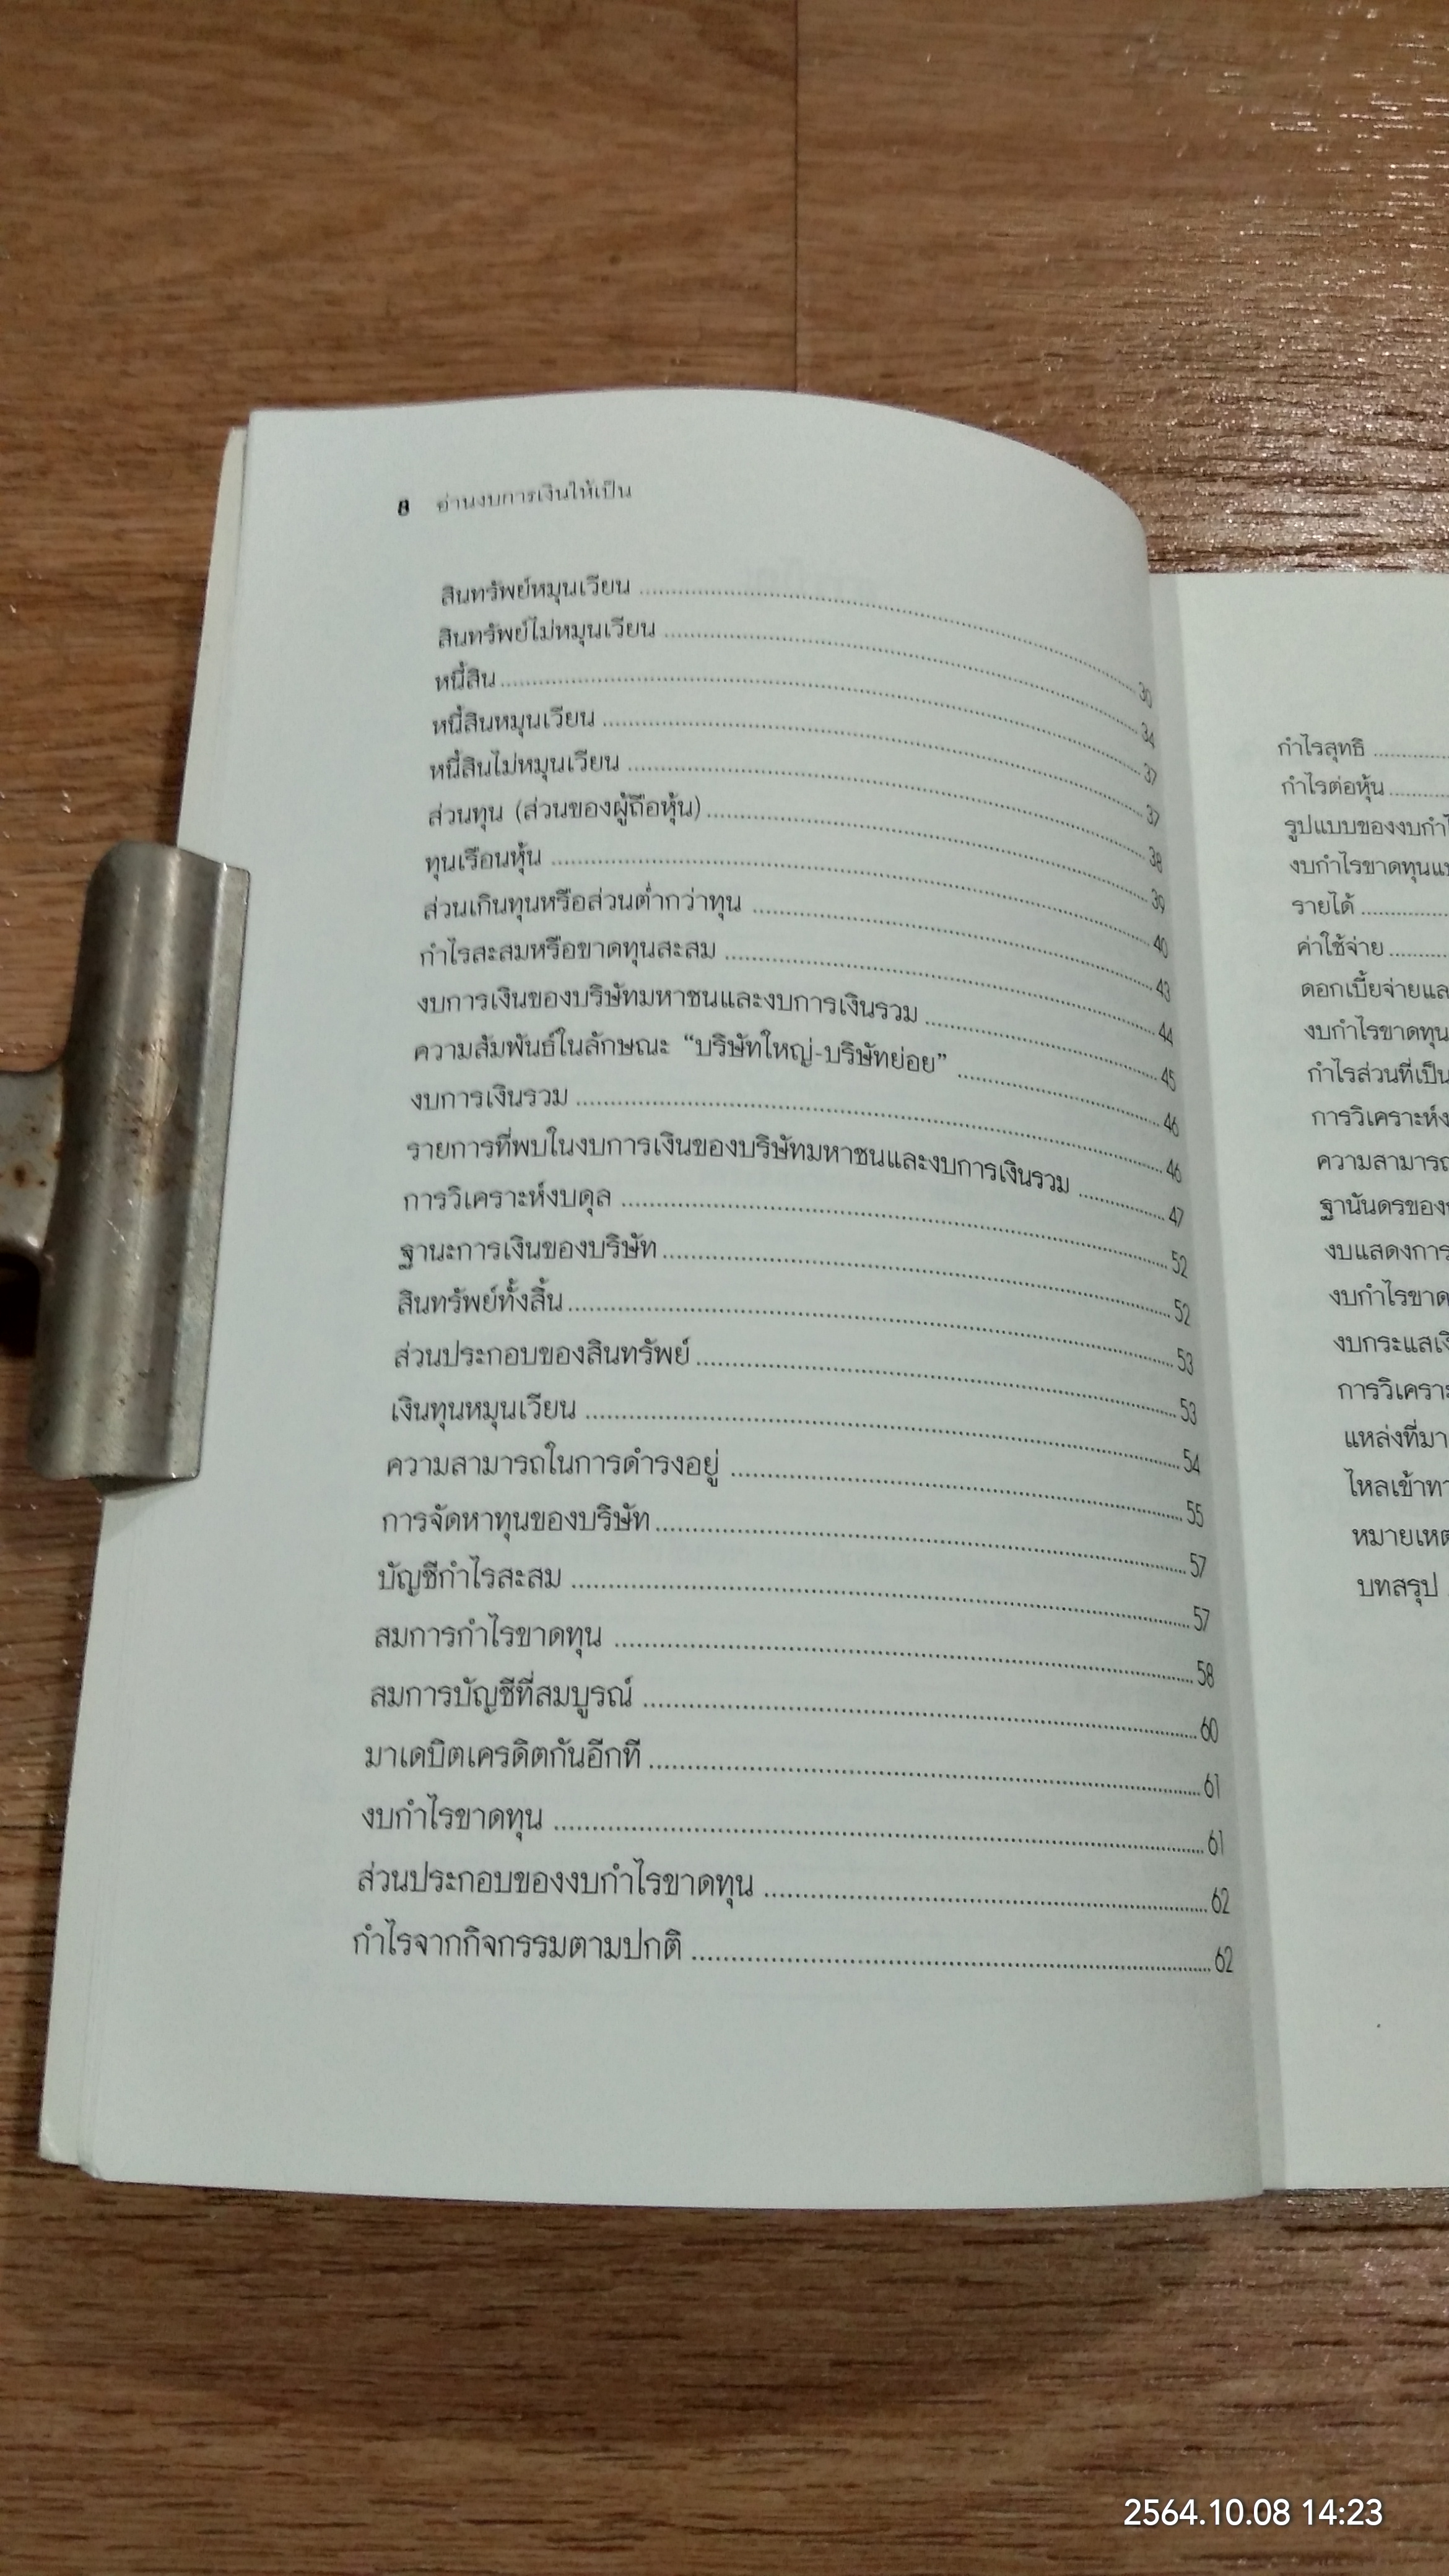 8 อ่านงบการเงินให้เป็น
สินทรัพย์หมุนเวียน 30
สินทรัพย์ไม่หมุนเวียน 34
หนี้สิน 37
หนี้สินหมุนเวียน 37
หนี้สินไม่หมุนเวียน 38
ส่วนทุน (ส่วนของผู้ถือหุ้น) 39
ทุนเรือนหุ้น 40
ส่วนเกินทุนหรือส่วนต่ำกว่าทุน 43
กำไรสะสมหรือขาดทุนสะสม 44
งบการเงินของบริษัทมหาชนและงบการเงินรวม 45
ความสัมพันธ์ในลักษณะ “บริษัทใหญ่-บริษัทย่อย” 46
งบการเงินรวม 46
รายการที่พบในงบการเงินของบริษัทมหาชนและงบการเงินรวม 47
การวิเคราะห์งบดุล 52
ฐานะการเงินของบริษัท 52
สินทรัพย์ทั้งสิ้น 53
ส่วนประกอบของสินทรัพย์ 53
เงินทุนหมุนเวียน 54
ความสามารถในการดำรงอยู่ 55
การจัดหาทุนของบริษัท 57
บัญชีกำไรสะสม 57
สมการกำไรขาดทุน 58
สมการบัญชีที่สมบูรณ์ 60
มาเดบิตเครดิตกันอีกที 61
งบกำไรขาดทุน 61
ส่วนประกอบของงบกำไรขาดทุน 62
กำไรจากกิจกรรมตามปกติ 62
กำไรสุทธิ
กำไรต่อหุ้น
รูปแบบของงบกำไ
งบกำไรขาดทุนแบ
รายได้
ค่าใช้จ่าย
ดอกเบี้ยจ่ายแล
งบกำไรขาดทุน
กำไรส่วนที่เป็น
การวิเคราะห์ง
ความสามารถ
ฐานันดรของ
งบแสดงการ
งบกำไรขาด
งบกระแสเงิ
การวิเคราะ
แหล่งที่มา
ไหลเข้าทา
หมายเหต
บทสรุป
2564.10.08 14:23